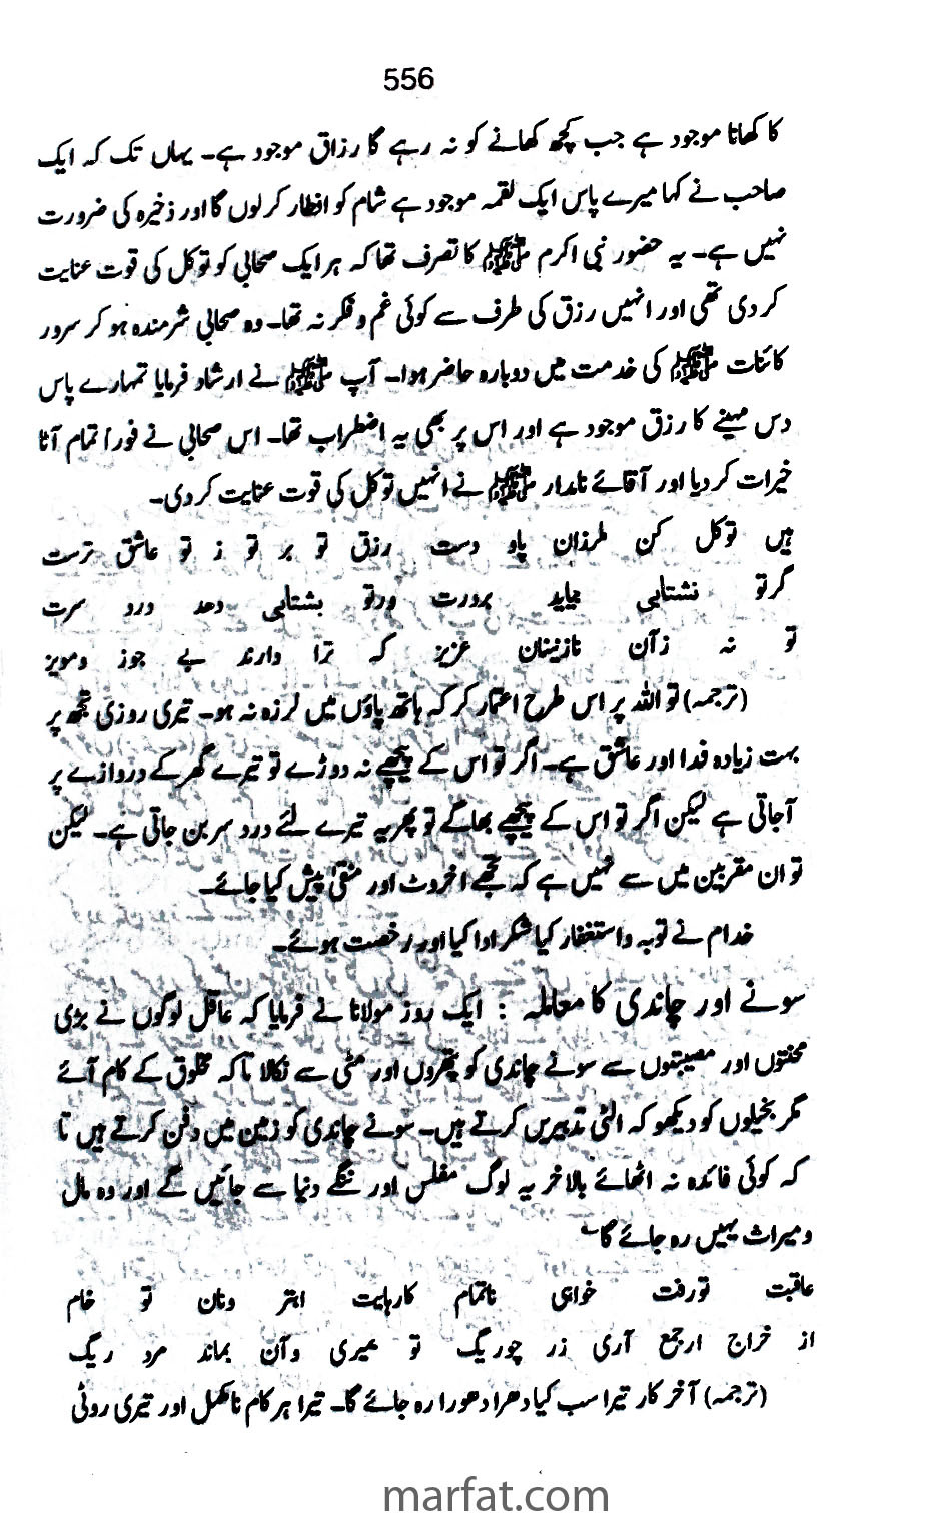 556
کا کھانا موجود ہے جب کچھ کھانے کو نہ رہے گا رزاق موجود ہے۔ یہاں تک کہ ایک
صاحب نے کہا میرے پاس ایک لقمہ موجود ہے شام کو افطار کرلوں گا اور ذخیرہ کی ضرورت
نہیں ہے۔ یہ حضور نبی اکرم ﷺ کا تصرف تھا کہ ہر ایک صحابی کو توکل کی قوت عنایت
کر دی تھی اور انہیں رزق کی طرف سے کوئی غم و فکر نہ تھا۔ وہ صحابی شرمندہ ہو کر سرور
کائنات ﷺ کی خدمت میں دوبارہ حاضر ہوا۔ آپ ﷺ نے ارشاد فرمایا تمہارے پاس
دس مہینے کا رزق موجود ہے اور اس پر بھی یہ اضطراب تھا۔ اس صحابی نے فوراً تمام آٹا
خیرات کر دیا اور آقائے نامدار ﷺ نے انہیں توکل کی قوت عنایت کر دی۔
ہیں توکل کن طرزان پاو دست رزق تو بر تو ز تو عاشق ترست
گرتو نشتابی بیاید بردرت ورتو بشتابی دحد درد سرت
تو نہ زآن نازنینان عزیز کہ ترا دارند بے جوز ومویز
(ترجمہ) تو اللہ پر اس طرح اعتماد کر کہ ہاتھ پاؤں میں لرزہ نہ ہو۔ تیری روزی تجھ پر
بہت زیادہ فدا اور عاشق ہے۔ اگر تو اس کے پیچھے نہ دوڑے تو تیرے گھر کے دروازے پر
آجاتی ہے لیکن اگر تو اس کے پیچھے بھاگے تو پھر یہ تیرے لئے درد سر بن جاتی ہے۔ لیکن
تو ان مقربین میں سے نہیں ہے کہ تجھے اخروٹ اور منقیٰ پیش کیا جائے۔
خدام نے توبہ واستغفار کیا شکر ادا کیا اور رخصت ہوئے۔
سونے اور چاندی کا معاملہ : ایک روز مولانا نے فرمایا کہ عاقل لوگوں نے بڑی
محنتوں اور مصیبتوں سے سونے چاندی کو پتھروں اور مٹی سے نکالا تاکہ مخلوق کے کام آئے
مگر بخیلوں کو دیکھو کہ الٹی تدبیریں کرتے ہیں۔ سونے چاندی کو زمین میں دفن کرتے ہیں تا
کہ کوئی فائدہ نہ اٹھائے بالاخر یہ لوگ مفلس اور ننگے دنیا سے جائیں گے اور وہ مال
ومیراث یہیں رہ جائے گا۔
عاقبت تورفت خواہی ناتمام کارہایت ابتر ونان تو خام
از خراج ارجمع آری زر چوریگ تو بمیری وآن بماند مرد ریگ
(ترجمہ) آخر کار تیرا سب کیا دھرا ادھورا رہ جائے گا۔ تیرا ہر کام نامکمل اور تیری روٹی
marfat.com